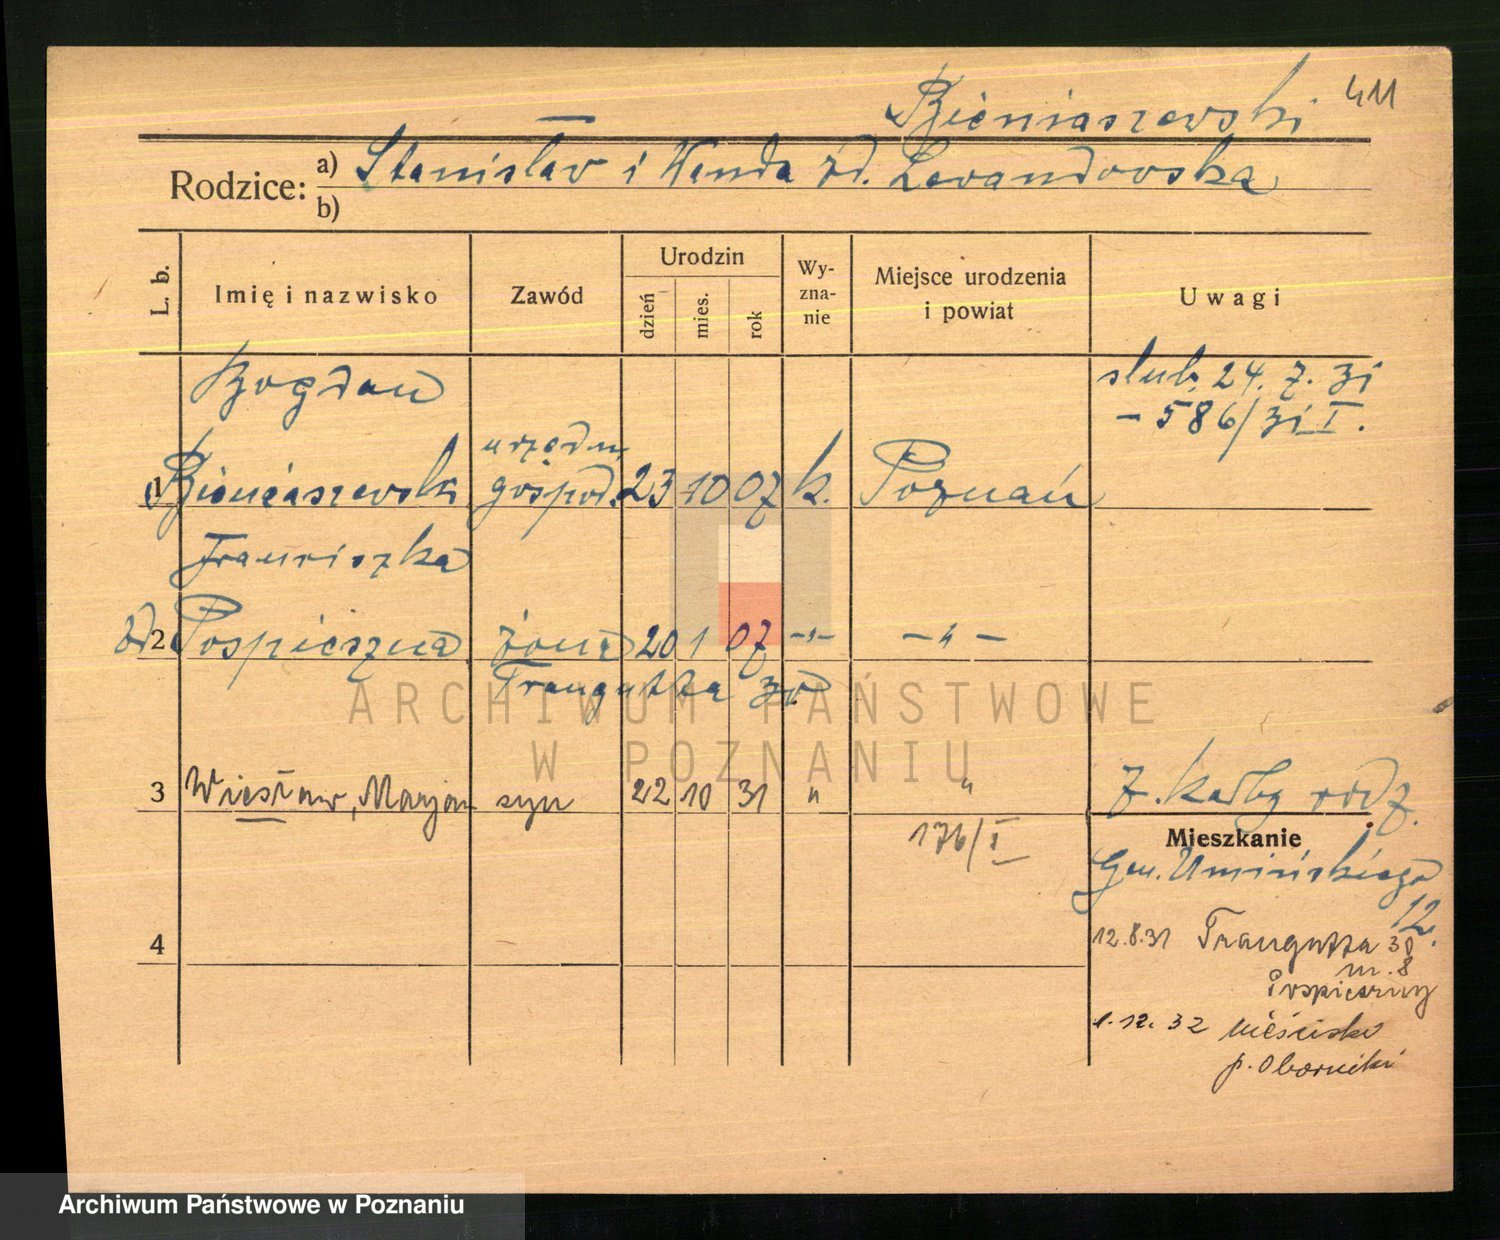 Bieniaszewski 411
Rodzice: a) Stanisław i Wanda zd. Lewandowska
b)
L. b. Imię i nazwisko Zawód Urodzin dzień mies. rok Wy-zna-nie Miejsce urodzenia i powiat Uwagi
Bogdan ślub. 24. 7. 31
- 586/31 I.
urzędn.
1 Bieniaszewski gospod. 23 10 07 k. Poznań
Franciszka
zd 2 Pospieszna żona 20 1 07 -"- -"-
Traugutta 30
ARCHIWUM PAŃSTWOWE
W POZNANIU
3 Wiesław, Marjan syn 22 10 31 " "
z. rodz.
176/I
Mieszkanie
Gen. Umińskiego
12.
4
12.8.31 Traugutta 30
m. 8
Pospieszny
1.12.32 Uścisko
p. Oborniki
Archiwum Państwowe w Poznaniu